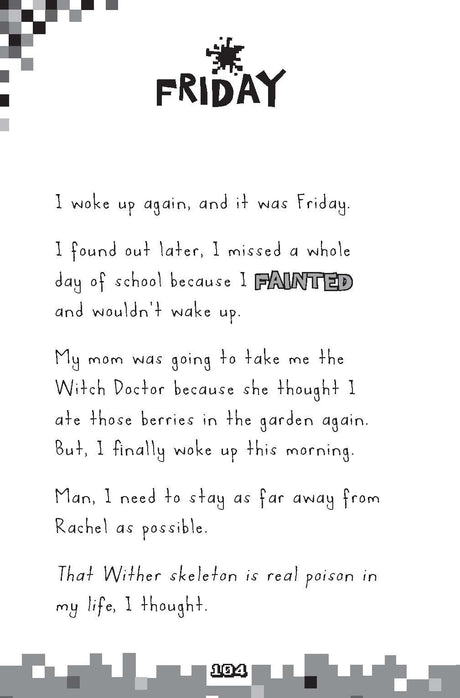 FRIDAY
I woke up again, and it was Friday.
I found out later, I missed a whole
day of school because I FAINTED
and wouldn't wake up.
My mom was going to take me the
Witch Doctor because she thought I
ate those berries in the garden again.
But, I finally woke up this morning.
Man, I need to stay as far away from
Rachel as possible.
That Wither skeleton is real poison in
my life, I thought.
104